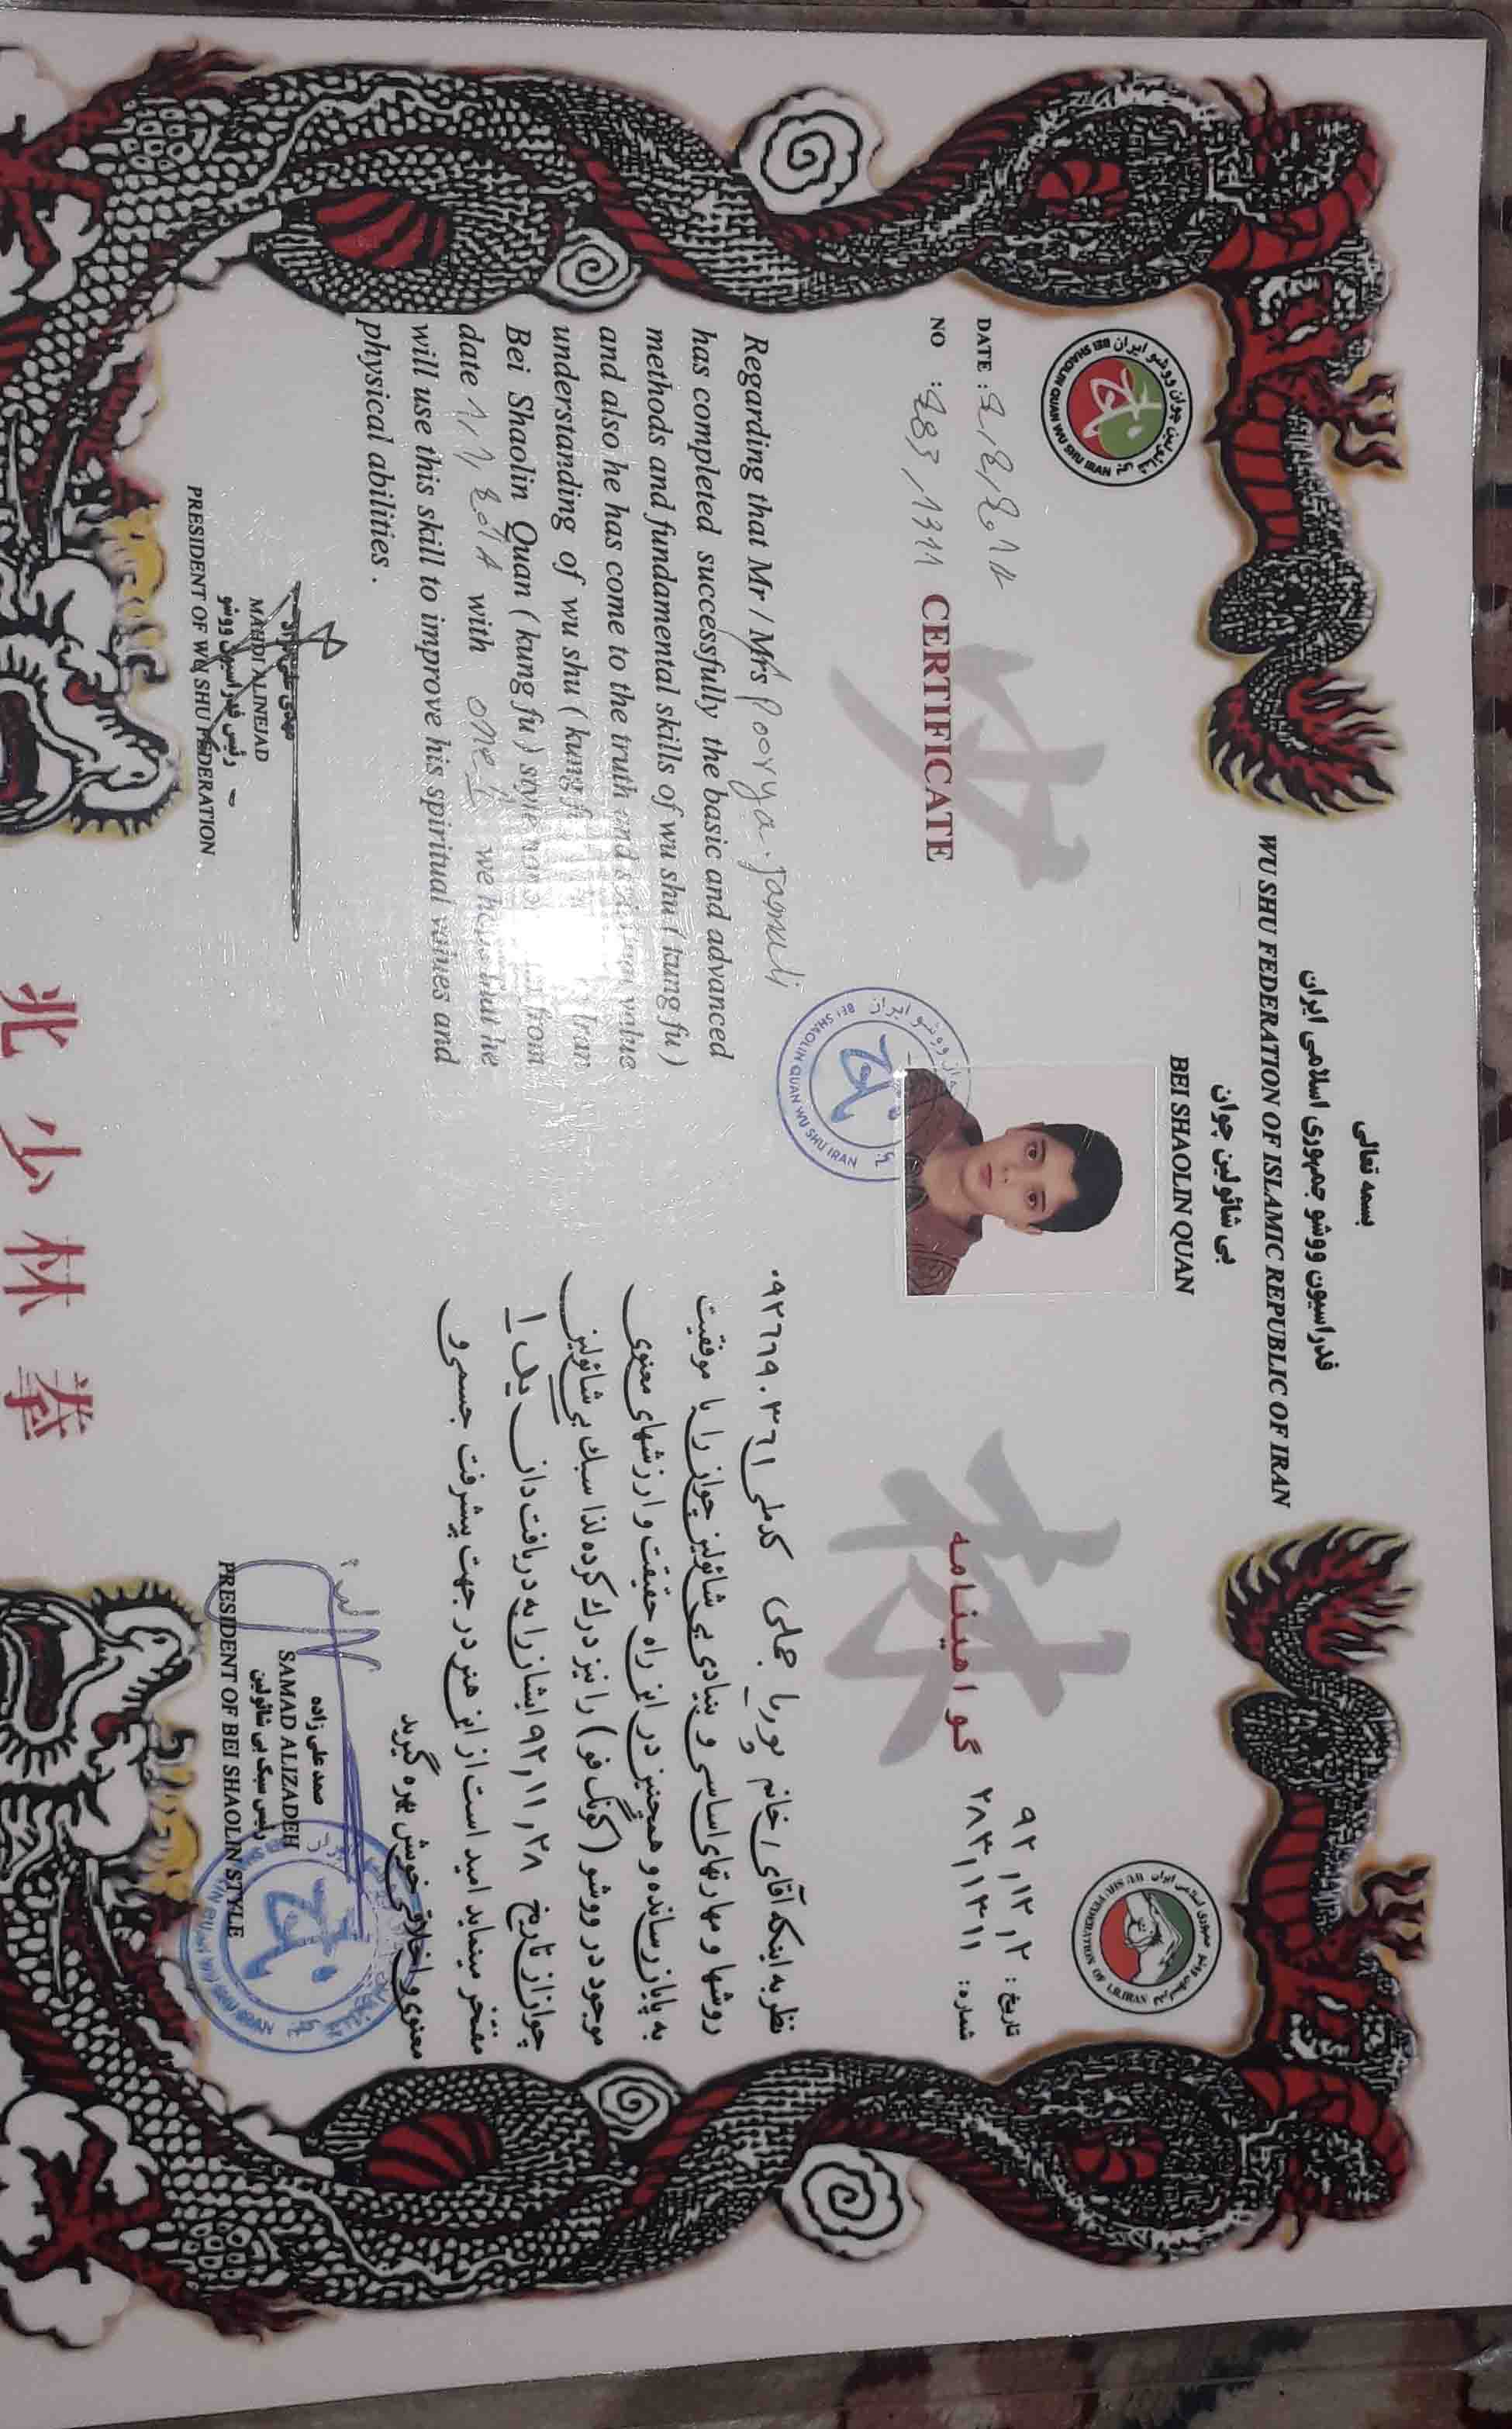 بسمه تعالی
فدراسیون ووشو جمهوری اسلامی ایران
WU SHU FEDERATION OF ISLAMIC REPUBLIC OF IRAN
بی شائولین چوان
BEI SHAOLIN QUAN
DATE :
NO : 283,1311
CERTIFICATE
Regarding that Mr / Mrs Poorya
has completed successfully the basic and advanced
methods and fundamental skills of wu shu ( kung fu )
and also he has come to the truth and value
understanding of wu shu ( kung fu Iran
Bei Shaolin Quan ( kung fu ) style from
date with one we hope that he
will use this skill to improve his spiritual values and
physical abilities .
مهدی علی نژاد
MAHDI ALINEJAD
رئیس فدراسیون ووشو
PRESIDENT OF WU SHU FEDERATION
تاریخ : ۹۲,۱۲,۲
شماره : ۲۸۳,۱۳۱۱
گواهینامه
نظر به اینکه آقای / خانم پوریا کدملی ۰۹۲۶۶۹۰۳۶۱
روشها و مهارتهای اساسی و بنیادی بی شائولین چوان را با موفقیت
به پایان رسانده و همچنین در این راه حقیقت و ارزشهای معنوی
موجود در ووشو (کونگ فو) را نیز درک کرده لذا سبک بی شائولین
چوان از تاریخ ۹۲,۱۱,۲۸ ایشان را به دریافت دان ۱
مفتخر مینماید امید است از این هنر در جهت پیشرفت جسمی و
معنوی و اخلاقی خویش بهره گیرید
صمد علی زاده
SAMAD ALIZADEH
رئیس سبک بی شائولین
PRESIDENT OF BEI SHAOLIN STYLE
北少林拳
BEI SHAOLIN QUAN WU SHU IRAN